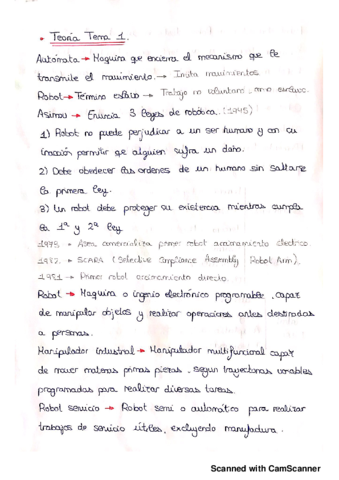 * Teoría Tema 1.
Autómata → Maquina que encierra el mecanismo que le
transmite el movimiento. → Imita movimientos
Robot → Término eslavo → Trabajo no voluntario, amo esclavo.
Asimov → Enuncia 3 leyes de robótica. (1945)
1) Robot no puede perjudicar a un ser humano y con su
inacción permitir que alguien sufra un daño.
2) Debe obedecer las ordenes de un humano sin saltarse
la primera ley.
3) Un robot debe proteger su existencia mientras cumpla
la 1ª y 2ª ley.
comercializa primer robot accionamiento electrico
SCARA (Selective Compliance Assembly Robot Arm).
1981 → Primer robot accionamiento directo.
Robot → Maquina o ingenio electrónico programable, capaz
de manipular objetos y realizar operaciones antes destinadas
a personas.
Manipulador industrial → Manipulador multifuncional capaz
de mover materias primas piezas, según trayectorias variables
programadas para realizar diversas tareas.
Robot servicio → Robot semi o automático para realizar
trabajos de servicio útiles, excluyendo manufactura.
Scanned with CamScanner